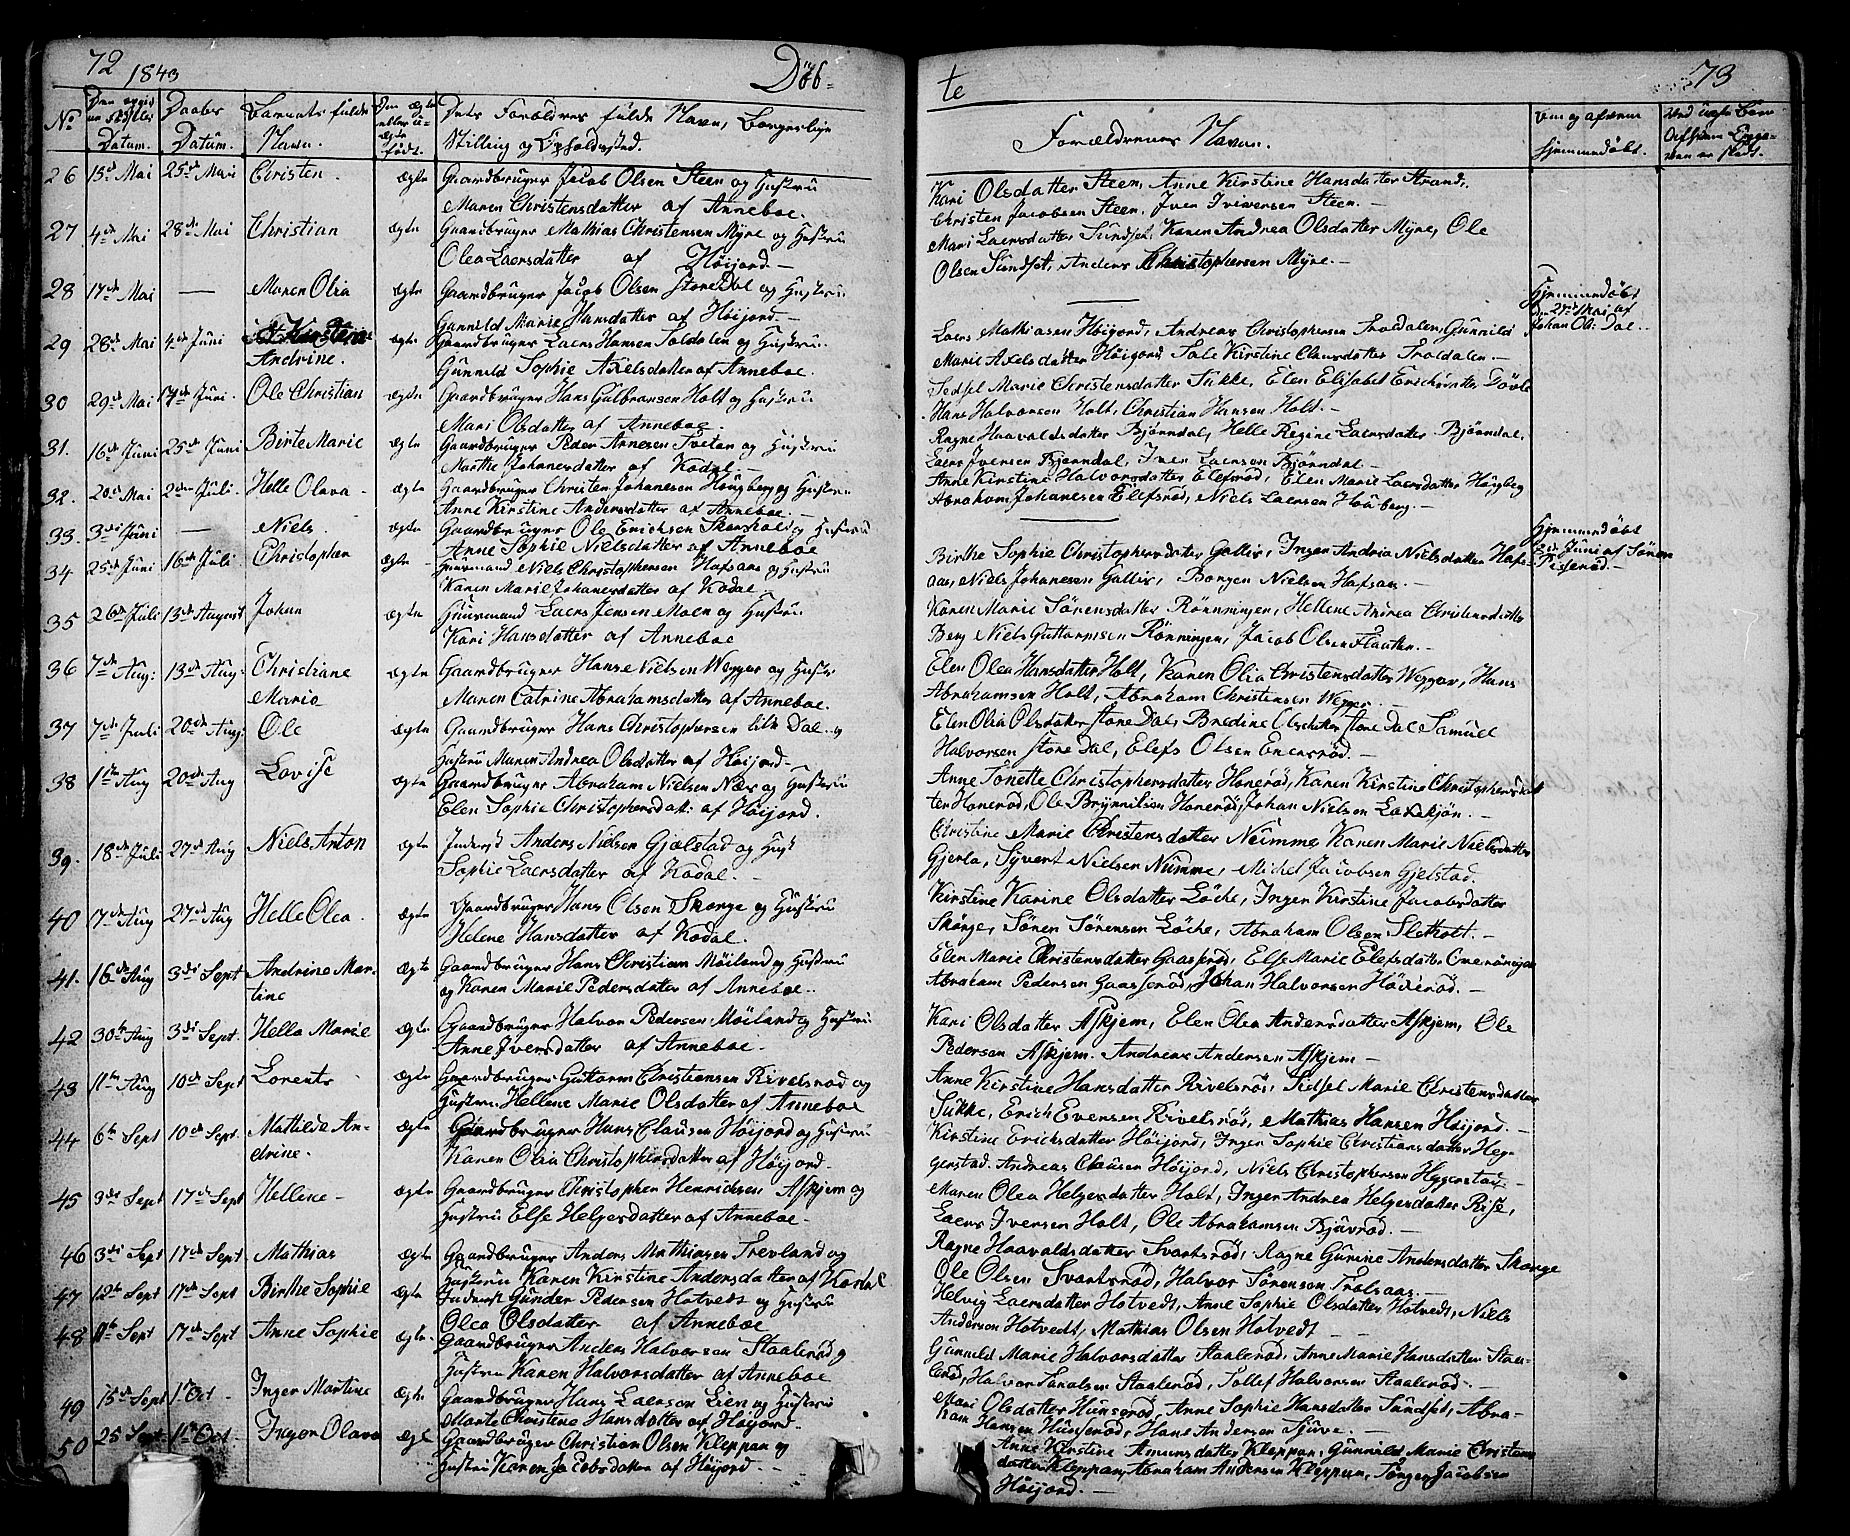 72 1843 Döb-
No Datum. Daabs Datum. Barnets fulde Navn. Stilling og Opholdssted.
26 15de Mai 25de Mai Christen. ægte Gaardbruger Jacob Olsen Steen og Hustru
Maren Christensdatter af Anneboe.
27 4de Mai 28de Mai Christian ægte Gaardbruger Mathias Christensen Myre og Hustru
Olea Laersdatter af Höijord.-
28 17de Mai — Maren Olia ægte Gaardbruger Jacob Olsen Store Dal og Hustru
Gunnild Marie Hansdatter af Höijord.-
29 28de Mai 4de Juni Andrine. ægte Gaardbruger Laers Hansen og Hustru.
Gunnild Sophie Axelsdatter af Anneboe.
30 29de Mai Juni. Ole Christian ægte Gaardbruger Hans Gulbransen Holt og Hustru
Mari Olsdatter af Anneboe.-
31. 16de Juni 25de Juni Birte Marie ægte Gaardbruger Peder Arnesen Tvetan og Hustru
Marthe Johanesdatter af Kodal.-
32. 20de Mai 2den Juli. Helle Olava - ægte Gaardbruger Christen Johanesen Hougberg og Hustru
Anne Kirstine Andersdatter af Anneboe.-
33. 3die Juni — Niels. ægte Gaardbruger Ole Erichsen og Hustru
Anne Sophie Nielsdatter af Anneboe
34 25de Juni 16de Juli Christopher ægte - Huusmand Niels Christophersen Hafsaas og Hustru
Karen Marie Johanesdatter af Kodal.
35 26de Juli 13de August Johan ægte Huusmand Laers Jensen Moen og Hustru
Kari Hansdatter af Anneboe
36 7de Aug: 13de Aug: Christiane ægte Gaardbruger Hans Nielsen Wegger og Hustru
Maria Maren Catrine Abrahamsdatter af Anneboe.
37 7de Juli 20de Aug: Ole ægte Gaardbruger Hans Christophersen lille Dal og
Hustru Maren Andrea Olsdatter af Höijord.-
38 1ste Aug 20de Aug Lovise ægte Gaardbruger Abraham Nielsen Næs og Hustru
Elen Sophie Christophersdatt: af Höijord.
39. 18de Juli 27de Aug Niels Anton ægte Inderst Anders Nielsen Gjelstad og Hust
Sophie Laersdatter af Kodal.-
40 17de Aug 27de Aug Helle Olea. ægte Gaardbruger Hans Olsen Skorge og Hustru
Helene Hansdatter af Kodal.
41. 16de Aug 3die Sept Andrine Mar- ægte Gaardbruger Hans Christian Möiland og Hustru
tine og Karen Marie Pedersdatter af Anneboe.
42 30te Aug 3die Sept. Hella Marie ægte Gaardbruger Halvor Pedersen Möiland og Hustru
Anne Iversdatter af Anneboe.
43 11te Aug 10de Sept Lorents ægte Gaardbruger Guttorm Christensen Rivelsröd og
Hustru Hellene Marie Olsdatter af Anneboe
44 6te Sept 10de Sept. Mathilde An- ægte Gaardbruger Hans Clausen Höijord og Hustru
drine. Karen Olia Christophersdatter af Höijord.
45 3die Sept 17de Sept Hellene- ægte Gaardbruger Christopher Henrichsen Askjem og
Hustru Else Helgesdatter af Anneboe.-
46 3die Sept 17de Sept Mathias ægte Gaardbruger Anders Mathiasen Trevland og
Hustru Karen Kirstine Andersdatter af Kodal
47 12te Sept 17de Sept Birthe Sophie ægte Inderst Gunder Pedersen Hotvedt og Hustru
Olea Olsdatter af Anneboe
48 Sept 17de Sept Anne Sophie ægte. Gaardbruger Anders Halvorsen Staaleröd og
Hustru Karen Halvorsdatter af Anneboe
49 15de Sept 1 Oct - Inger Martine ægte Gaardbruger Hans Laersen Lien og Hustru
Marte Christene Hansdatter af Höijord.
50 25 Sept 1 Oct. Inger Olava ægt Gaardbruger Christian Olsen Kleppan og
Hustru Karen Jacobsdatter af Höijord.-
te 73
Forældrenes Navn. Hjemmedöbt.
Kari Olsdatter Steen, Anne Kirstine Hansdatter Strand,
Christen Jacobsen Steen, Iver Iversen Steen.-
Mari Laersdatter Sundset, Karen Andrea Olsdatter Myre, Ole
Olsen Sundset, Anders Christophersen Myre.-
— Hjemmedöbt 27de Mai af Johan Ol: Dal.
Laers Mathiasen Höigord, Andreas Christophersen Troldalen, Gunnild
Marie Axelsdatter Höigord, Kirstine Clausdatter Troldalen.-
Sedsel Marie Christensdatter Sukke, Elen Elisabet
Hans Halvorsen Holt, Christian Hansen Holt.-
Ragne Haavaldsdatter Bjørndal, Helle Regine Laersdatter Bjørndal,
Laers Iversen Bjerndal, Iver Laersen Björndal-
Anne Kirstine Halvorsdatter Elefsröd, Elen Marie Laersdatter Hougberg
Abraham Johanesen Elefsröd, Niels Laersen.-
— Hjemmedöbt Juni af Sören
Birthe Sophie Christophersdatter Gallis, Inger Andria Nielsdatter Hafs-
aas, Niels Johanesen Gallis, Borger Nielsen Hafsaas.-
Karen Marie Sörensdatter Rönningen, Hellene Andrea Christensdatter
Berg Niels Guttormsen Rönningen, Jacob Olsen Flaatten.-
Elen Olea Hansdatter Holt, Karen Olia Christensdatter Wegger, Hans
Abrahamsen Holt, Abraham Christensen Wegger.-
Elen Olia Olsdatter Store Dal, Bredine Olsdatter Store Dal Samuel
Halvorsen Store Dal, Elefs Olsen.-
Anne Tonette Christophersdatter Haneröd, Karen Kirstine Christophersdat-
ter Haneröd, Ole Brynnilsen Haneröd, Johan Nielsen.-
Christine Marie Christensdatter Numme Karen Marie Nielsdatter
Gjerla, Syvert Nielsen Numme, Michel Jacobsen Gjelstad.
Kirstine Karine Olsdatter Löche, Inger Kirstine Jacobsdatter
Skorge, Sören Sörensen Löche, Abraham Olsen Sletholt.-
Elen Marie Christensdatter Gaaseröd, Else Marie Elefsdatter
Abraham Pedersen Gaaseröd, Johan Halvorsen.-
Kari Olsdatter Askjem, Elen Olea Andersdatter Askjem, Ole
Pedersen Askjem. Andreas Andersen Askjem-
Anne Kirstine Hansdatter Rivelsröd, Sidsel Marie Christensdatter
Sukke, Erich Evensen Rivelsröd, Mathias Hansen Höijord.-
Kirstine Erichsdatter Höijord, Inger Sophie Christiansdatter Heg-
gerstad. Andreas Clausen Höijord, Niels Christophersen Heggerstad-
Maren Olea Helgesdatter Holt, Inger Andrea Helgesdatter Rise,
Laers Iversen Holt, Ole Abrahamsen Bjuvröd.-
Ragne Haavaldsdatter Svartsröd, Ragne Gurine Andersdatter Skorge
Ole Olsen Svartsröd, Halvor Sörensen Trolsaas.-
Helvig Laersdatter Hotvedt, Anne Sophie Olsdatter Hotvedt, Niels
Andersen Hotvedt, Mathias Olsen Hotvedt-
Gunnild Marie Halvorsdatter Staaleröd, Anne Marie Hansdatter Staa-
leröd, Halvor Staaleröd, Tollef Halvorsen Staaleröd.-
Mari Olsdatter Hunseröd, Anne Sophie Hansdatter Sundset, Abra-
ham Hansen Hunseröd, Hans Andersen Sjuve.-
Anne Kirstine Amunsdatter Kleppan, Gunnild Marie Christens
datter Kleppan, Abraham Andersen Kleppan, Jacobsen
Höijord.-